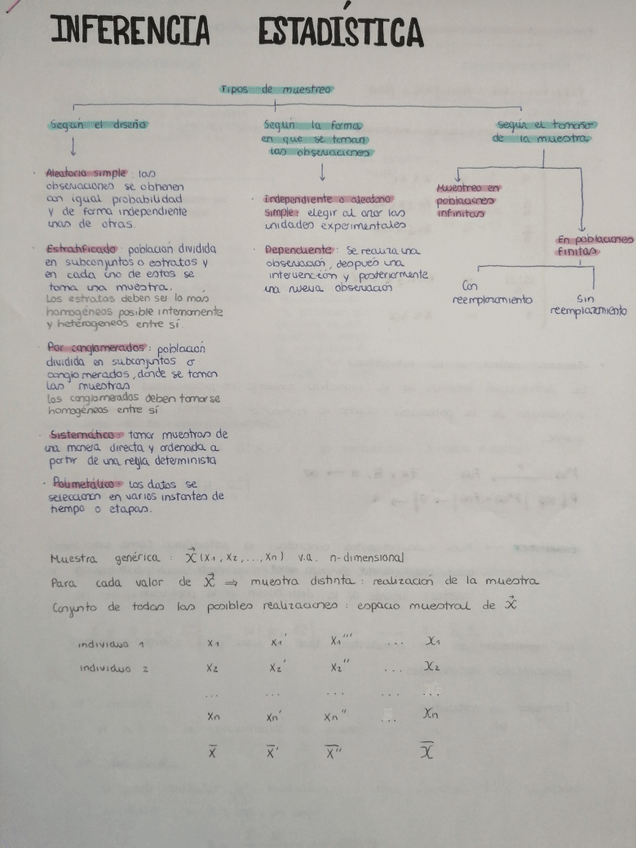 INFERENCIA ESTADÍSTICA
Tipos de muestreo
Según el diseño
Aleatorio simple: las
observaciones se obtienen
con igual probabilidad
y de forma independiente
unas de otras.
Estratificado: población dividida
en subconjuntos o estratos y
en cada uno de estos se
toma una muestra.
Los estratos deben ser lo mas
homogéneos posible internamente
y heterogeneos entre sí.
Por conglomerados: población
dividida en subconjuntos o
conglomerados, donde se toman
las muestras
los conglomerados deben tomarse
homogéneos entre sí
Sistemático: tomar muestras de
una manera directa y ordenada a
partir de una regla determinista
Polimetálico: los datos se
seleccionan en varios instantes de
tiempo o etapas.
Según la forma
en que se toman
las observaciones
Independiente o aleatorio
simple: elegir al azar las
unidades experimentales
Dependiente: Se realiza una
observación, después una
intervención y posteriormente
una nueva observación
según el tamaño
de la muestra
Muestreo en
poblaciones
infinitas
En poblaciones
finitas
Con
reemplazamiento
Sin
reemplazamiento
Muestra genérica: X⃗ (X₁, X₂, ..., Xn) v.a. n-dimensional
Para cada valor de X⃗ ⇒ muestra distinta: realización de la muestra
Conjunto de todas las posibles realizaciones: espacio muestral de X⃗
individuo 1 x₁ x₁' x₁''' ... X₁
individuo 2 x₂ x₂' x₂'' ... X₂
... ... ... ... ...
xn xn' xn'' ... Xn
x̄ x̄' x̄'' X̄